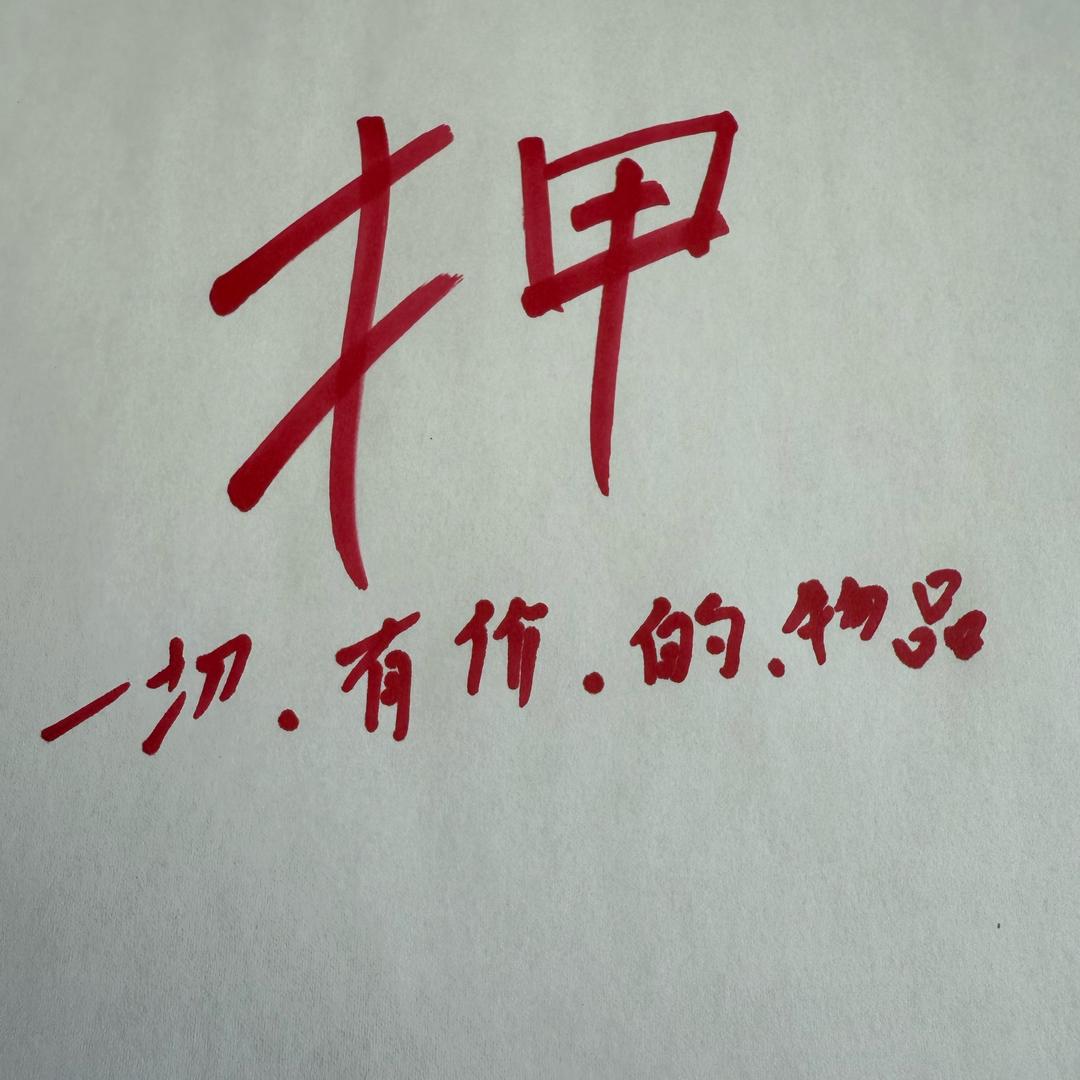 押
一切.有价.的.物品